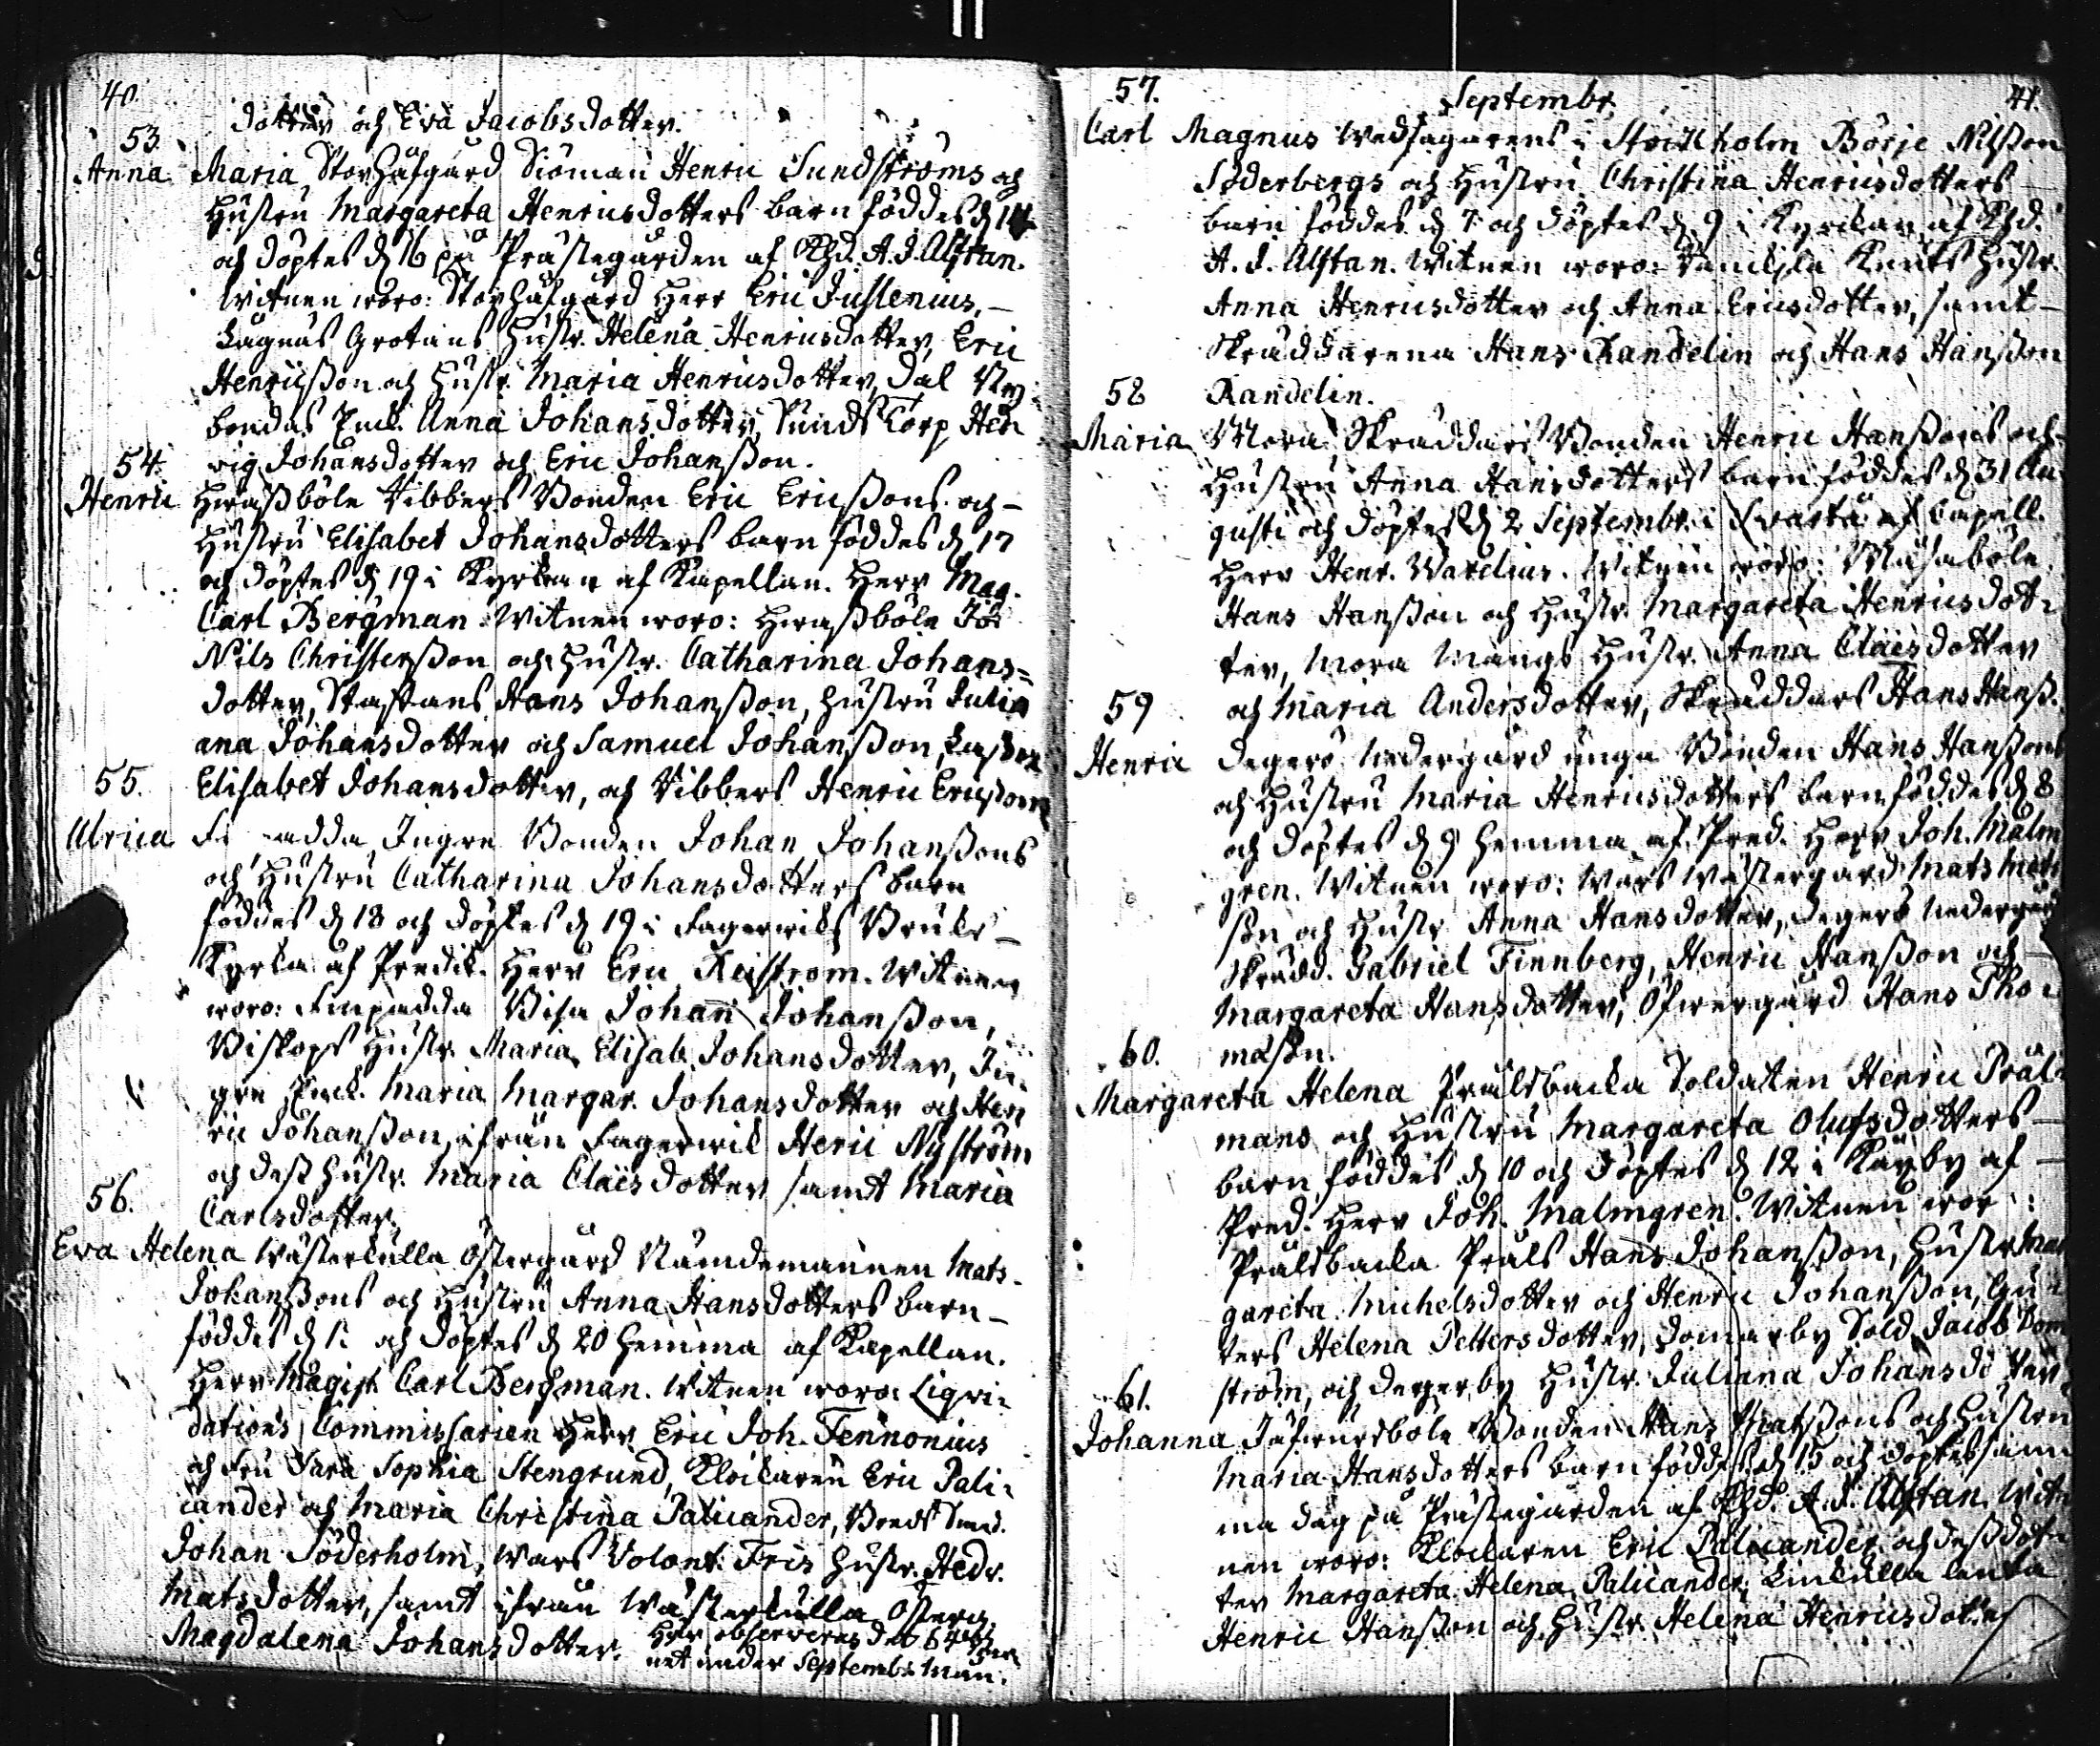 40.
dotter och Eva Jacobsdotter.
53.
Anna Maria, Storhåfgård Siöman Henric Sundströms och
Hustru Margareta Henricsdotters barn föddes d. 14
och döptes d. 16 på Prästegården af Khd. A. J. Alftan.
Witnen woro: Storhåfgård Herr Eric Juslenius,
Lagnäs Grotans Hustr. Helena Henricsdotter, Eric
Henricsson och Hustr. Maria Henricsdotter, Dal Ny-
bondas Enck. Anna Johansdotter, Sunds Torp Hed-
vig Johansdotter och Eric Johansson.
54.
Henric Hwassböle Vibbers Bonden Eric Ericssons och
Hustru Elisabet Johansdotters barn föddes d. 17
och döptes d. 19 i Kyrkan af Kapellan. Herr Mag.
Carl Bergman. Witnen woro: Hwassböle
Nils Christersson och Hustr. Catharina Johans=
dotter, Stastans Hans Johansson, hustru Juli
ana Johansdotter och Samuel Johansson,
Elisabet Johansdotter, och Vibbers Henric Ericsson
55.
Ulrica Ingre Bonden Johan Johanssons
och Hustru Catharina Johansdotters barn
föddes d. 18 och döptes d. 19 i Fagerwiks Bruks
Kyrka af Predik. Herr Eric Reiström. Witnen
woro: Finpadda Visa Johan Johansson,
Biskops Hustr. Maria Elisab. Johansdotter, In-
gre Enck. Maria Margar. Johansdotter och Hen
ric Johansson, ifrån Fagerwik Henric Nyström
och dess Hustr. Maria Claësdotter samt Maria
Carlsdotter.
56.
Eva Helena Wästerkulla Östergård Nämdemannen Mats
Johanssons och Hustru Anna Hansdotters barn
föddes d. och döptes d. 20 hemma af Kapellan.
Herr Magist. Carl Bergman. Witnen woro: Liqvi-
dations Commissarien Herr Eric Joh. Fennonius
och Fru Sara Sophia Stengrund, Klockaren Eric Pali-
cander och Maria Christina Palicander, Smed.
Johan Söderholm, Wars Volont. Fris Hustr. Hedv.
Matsdotter, samt ifrån Wästerkulla Österg.
Magdalena Johansdotter.
Här observeras det 64de bar
net under Septembr. Mån.
57. Septembr. 41.
Carl Magnus Wedsagarens i Stockholm Börje Nilsson
Söderbergs och Hustru Christina Henricsdotters
barn föddes d. 7 och döptes d. 9 i Kyrckan af Khd.
A. J. Alftan. Witnen woro: Knuts Hustr.
Anna Henricsdotter och Anna Ericsdotter, samt
Skräddarena Hans Randelin och Hans Hansson
58 Randelin.
Maria Mora Skräddars Bonden Henric Hanssons och
Hustru Anna Hansdotters barn föddes d. 31 Au-
gusti och döptes d. 2 Septembr. i Svartå af Capell.
Herr Henr. Warelius. Witnen woro: Måsaböle
Hans Hansson och Hustr. Margareta Henricsdot-
ter, Mora Mangs Hustr. Anna Claësdotter
59 och Maria Andersdotter, Skräddars Hans Hanss.
Henric Degerö Nedergård unga Bonden Hans Hanssons
och Hustru Maria Henricsdotters barn föddes d. 8
och döptes d. 9 hemma af Pred. Herr Joh. Malm
gren. Witnen woro: Wars Wästergård Mats Mats
son och Hustr. Anna Hansdotter, Degerö Nedergård
Skrädd. Gabriel Finnberg, Henric Hansson och
Margareta Hansdotter, Öfwergård Hans Tho-
60. masson.
Margareta Helena Prälsbacka Soldaten Henric Präl-
mans och Hustru Margareta Olufsdotters
barn föddes d. 10 och döptes d. 12 i Käxby af
Pred. Herr Joh. Malmgren. Witnen woro:
Prälsbacka Präls Hans Johansson, Hustr. Mar
gareta Michelsdotter och Henric Johansson,
ters Helena Pettersdotter, Domarby Sold. Jacob Dom
61. ström, och Degerby Hustr. Juliana Johansdotter
Johanna Bonden Hans Matssons och Hustru
Maria Hansdotters barn föddes d. 15 och döptes sam-
ma dag på Prästegården af Khd. A. J. Alftan. Wit-
nen woro: Klockaren Eric Palicander och dess dot-
ter Margareta Helena Palicander, Linkulla
Henric Hansson och Hustr. Helena Henricsdotter